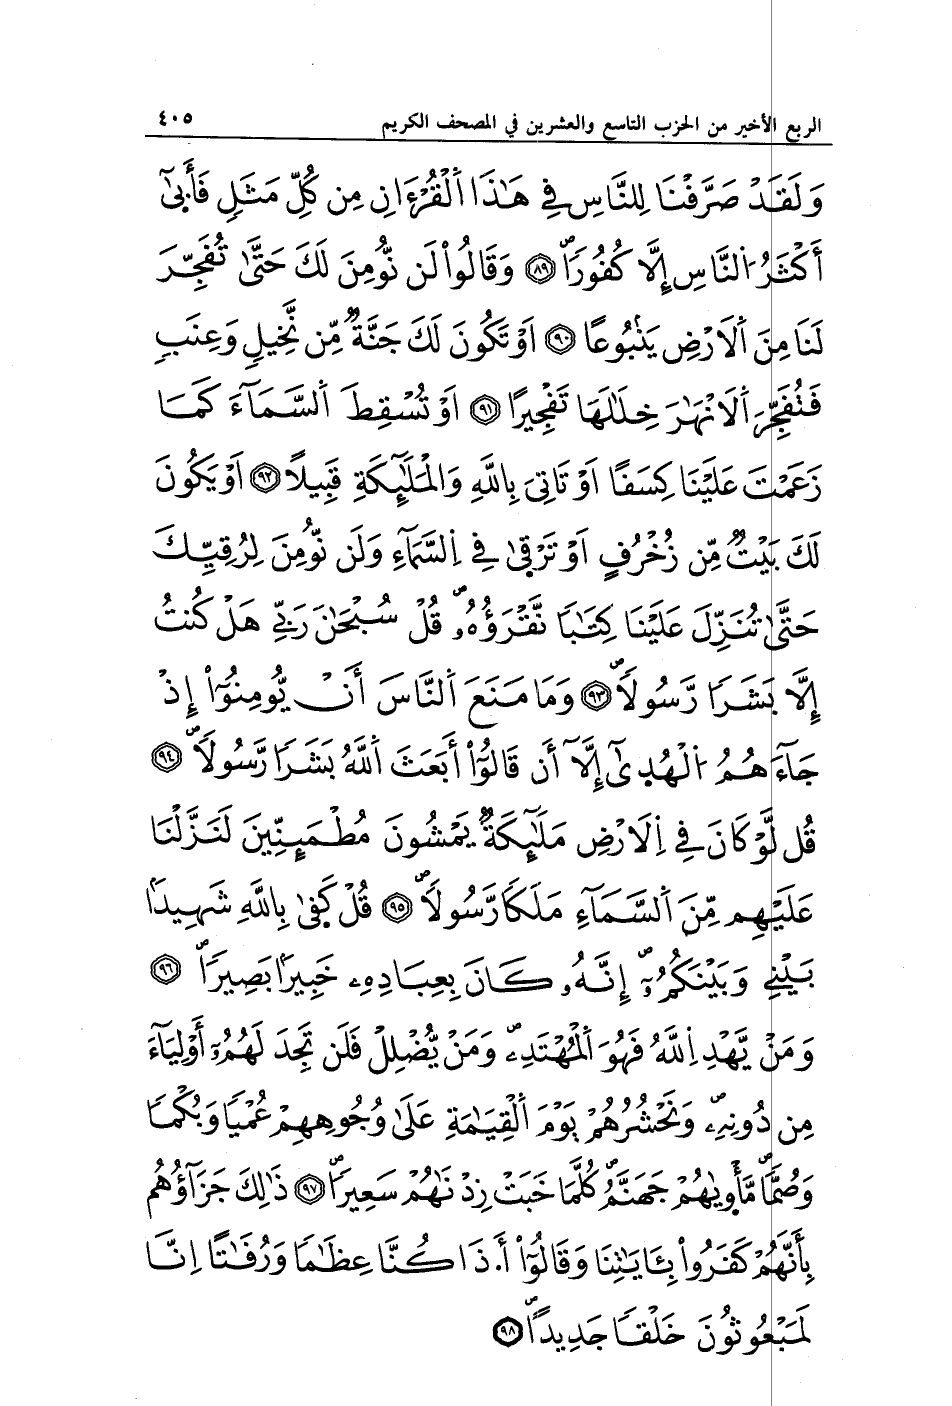 الربع الأخير من الحزب التاسع والعشرين في المصحف الكريم ٤٠٥
وَلَقَدْ صَرَّفْنَا لِلنَّاسِ فِي هَٰذَا اَ۬لْقُرْءَانِ مِن كُلِّ مَثَلٖ فَأَبَىٰٓ
أَكْثَرُ اُ۬لنَّاسِ إِلَّا كُفُورٗاۖ ٨٩ وَقَالُواْ لَن نُّومِنَ لَكَ حَتَّىٰ تُفَجِّرَ
لَنَا مِنَ اَ۬لَارْضِ يَنۢبُوعًا ٩٠ اَوْ تَكُونَ لَكَ جَنَّةٞ مِّن نَّخِيلٖ وَعِنَبٖ
فَتُفَجِّرَ اَ۬لَانْهَٰرَ خِلَٰلَهَا تَفْجِيرًا ٩١ اَوْ تُسْقِطَ اَ۬لسَّمَآءَ كَمَا
زَعَمْتَ عَلَيْنَا كِسَفًا اَوْ تَاتِيَ بِاللَّهِ وَالْمَلَٰٓئِكَةِ قَبِيلًا ٩٢ اَوْ يَكُونَ
لَكَ بَيْتٞ مِّن زُخْرُفٍ اَوْ تَرْقَىٰ فِي اِ۬لسَّمَآءِ وَلَن نُّومِنَ لِرُقِيِّكَ
حَتَّىٰ تُنَزِّلَ عَلَيْنَا كِتَٰبٗا نَّقْرَؤُهُۥۖ قُلْ سُبْحَٰنَ رَبِّي هَلْ كُنتُ
إِلَّا بَشَرٗا رَّسُولٗاۖ ٩٣ وَمَا مَنَعَ اَ۬لنَّاسَ أَنْ يُّومِنُوٓاْ إِذْ
جَآءَهُمُ اُ۬لْهُدَىٰٓ إِلَّآ أَن قَالُوٓاْ أَبَعَثَ اَ۬للَّهُ بَشَرٗا رَّسُولٗاۖ ٩٤
قُل لَّوْ كَانَ فِي اِ۬لَارْضِ مَلَٰٓئِكَةٞ يَمْشُونَ مُطْمَئِنِّينَ لَنَزَّلْنَا
عَلَيْهِم مِّنَ اَ۬لسَّمَآءِ مَلَكٗا رَّسُولٗاۖ ٩٥ قُلْ كَفَىٰ بِاللَّهِ شَهِيدَاۢ
بَيْنِي وَبَيْنَكُمُۥٓۖ إِنَّهُۥ كَانَ بِعِبَادِهِۦ خَبِيرَاۢ بَصِيرٗاۖ ٩٦
وَمَنْ يَّهْدِ اِ۬للَّهُ فَهُوَ اَ۬لْمُهْتَدِۦۖ وَمَنْ يُّضْلِلْ فَلَن تَجِدَ لَهُمُۥٓ أَوْلِيَآءَ
مِن دُونِهِۦۖ وَنَحْشُرُهُمْ يَوْمَ اَ۬لْقِيَٰمَةِ عَلَىٰ وُجُوهِهِمْ عُمْيٗا وَبُكْمٗا
وَصُمّٗاۖ مَّأْوِيٰهُمْ جَهَنَّمُۖ كُلَّمَا خَبَتْ زِدْنَٰهُمْ سَعِيرٗاۖ ٩٧ ذَٰلِكَ جَزَآؤُهُم
بِأَنَّهُمْ كَفَرُواْ بِـَٔايَٰتِنَا وَقَالُوٓاْ أَ.ذَا كُنَّا عِظَٰمٗا وَرُفَٰتًا اِنَّا
لَمَبْعُوثُونَ خَلْقٗا جَدِيدٗاۖ ٩٨